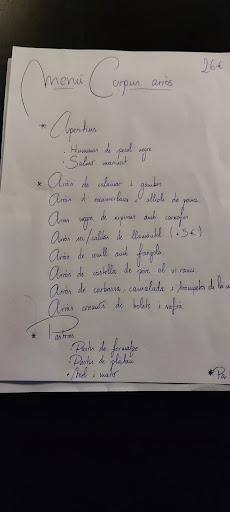 Menú Corpus arròs 26€
* Aperitius
· Hummus de pesol negre
· Salmó marinat
* Arròs de calamar i gambes
Arròs d'escamarlans i allioli de poma
Arròs negre de sepionas amb carxofes
Arròs sec/caldós de llamàntol (+5€)
Arròs de conill amb farigola
Arròs de costella de porc al vi ranci
Arròs de carbassa, cansalada i trompetes de la
Arròs cremós de bolets i safrà
* Postres
· Pastís de formatge
· Pastís de plàtan
· Mel i mató
* Pa